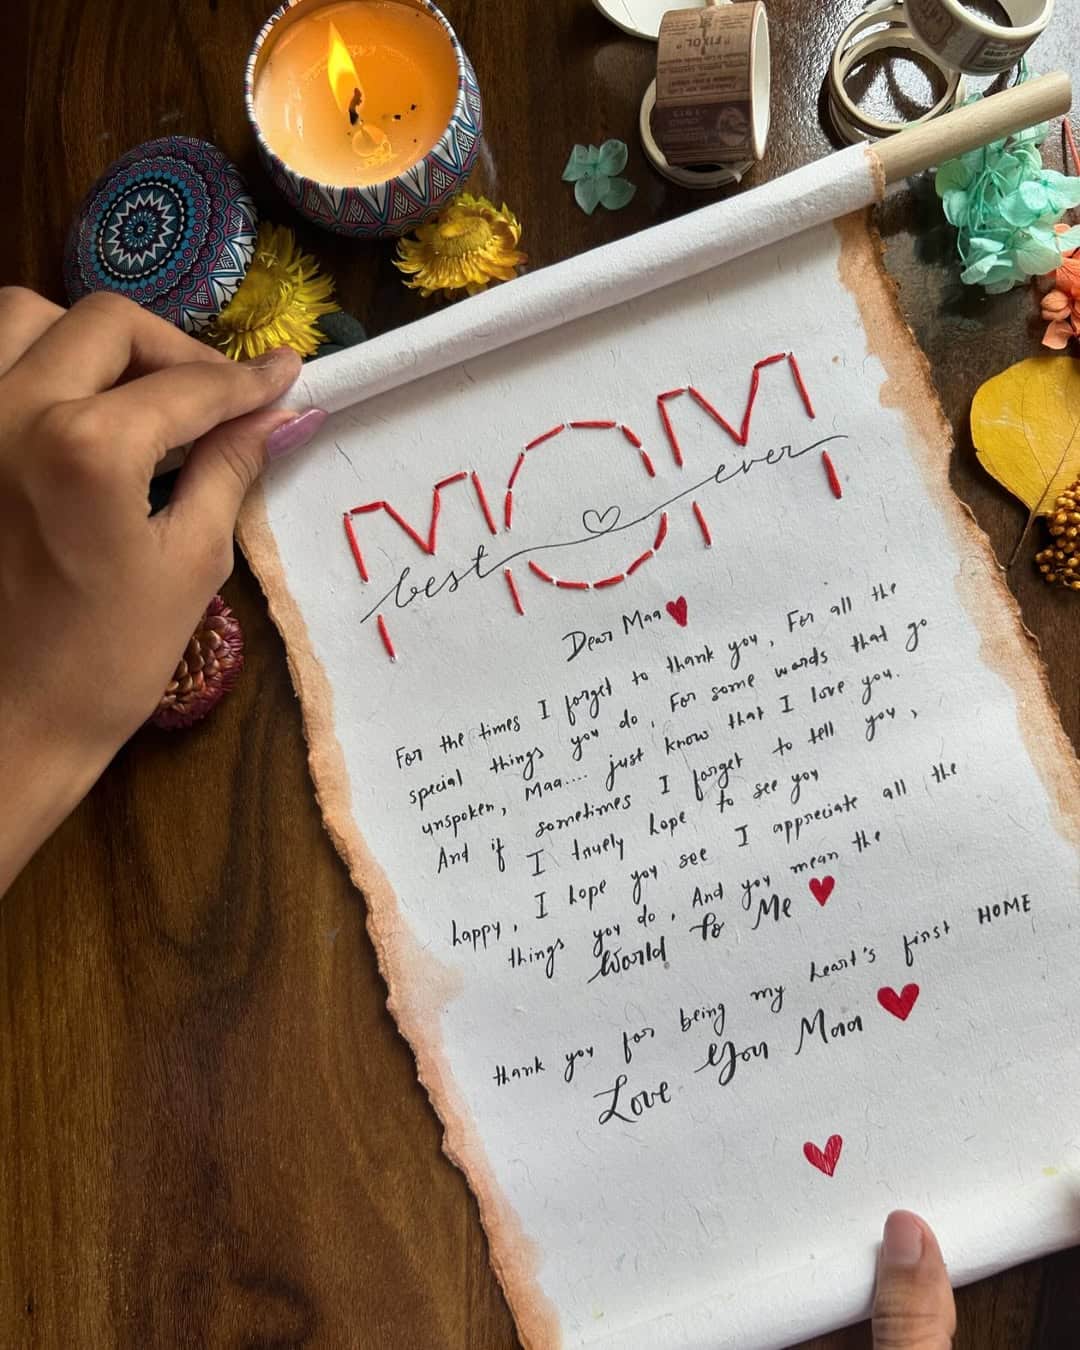 " FIXOL "
MOM
best ever
Dear Maa
For the times I forget to thank you, For all the
special things you do, For some words that go
unspoken, Maa.... just know that I love you.
And if sometimes I forget to tell you,
I truely hope to see you
happy, I hope you see I appreciate all the
things you do, And you mean the
World to Me
thank you for being my heart's first HOME
Love You Maa